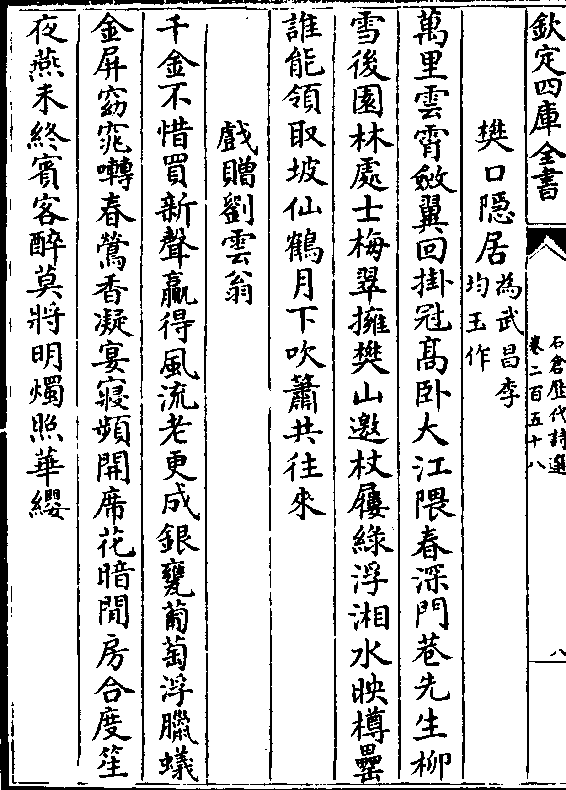 欽定四庫全書
石倉歷代詩選
卷二百五十八
八
樊口隠居為武昌李
均玉作
萬里雲霄斂翼回掛冠髙卧大江隈春深門巷先生柳
雪後園林處士梅翠擁樊山邀杖屨綠浮湘水映樽罍
誰能領取坡仙鶴月下吹簫共往來
戲贈劉雲翁
千金不惜買新聲贏得風流老更成銀甕葡萄浮臘蟻
金屏窈窕囀春鶯香凝宴寢頻開席花暗閒房合度笙
夜燕未終賓客醉莫將明燭照華纓